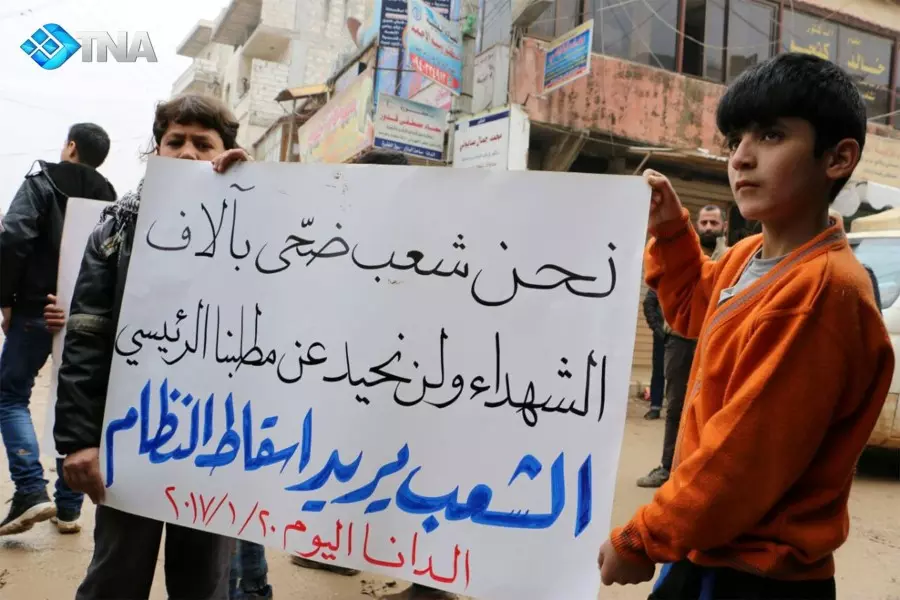 TNA
نحن شعب ضحّى بآلاف
الشهداء ولن نحيد عن مطلبنا الرئيسي
الشعب يريد اسقاط النظام
الدانا اليوم ٢٠١٧/١/٢٠
خالد